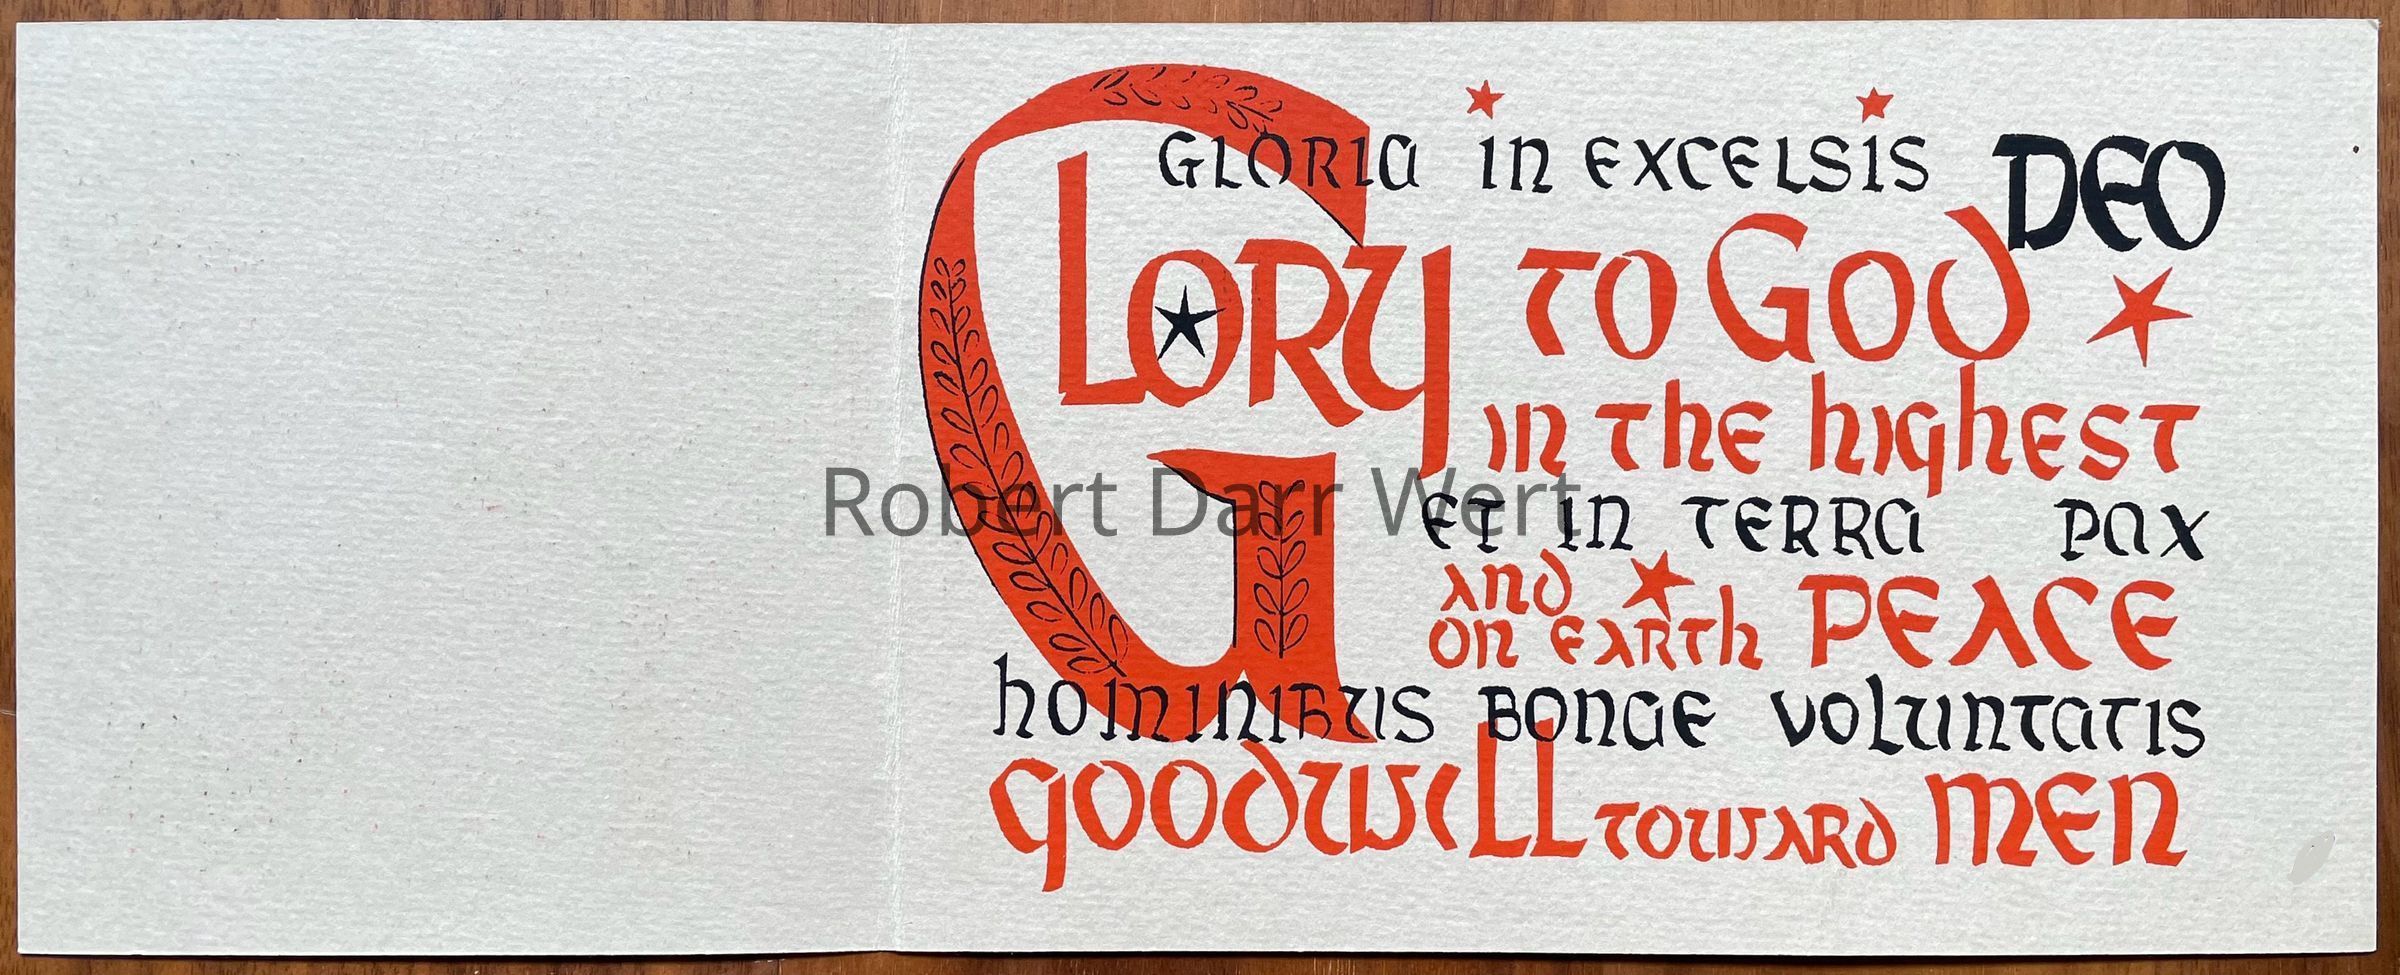 GLORIA IN EXCELSIS DEO
GLORY TO GOD
IN THE HIGHEST
Robert Darr Wert
ET IN TERRA PAX
AND
ON EARTH PEACE
HOMINIBUS BONAE VOLUNTATIS
GOODWILL TOWARD MEN